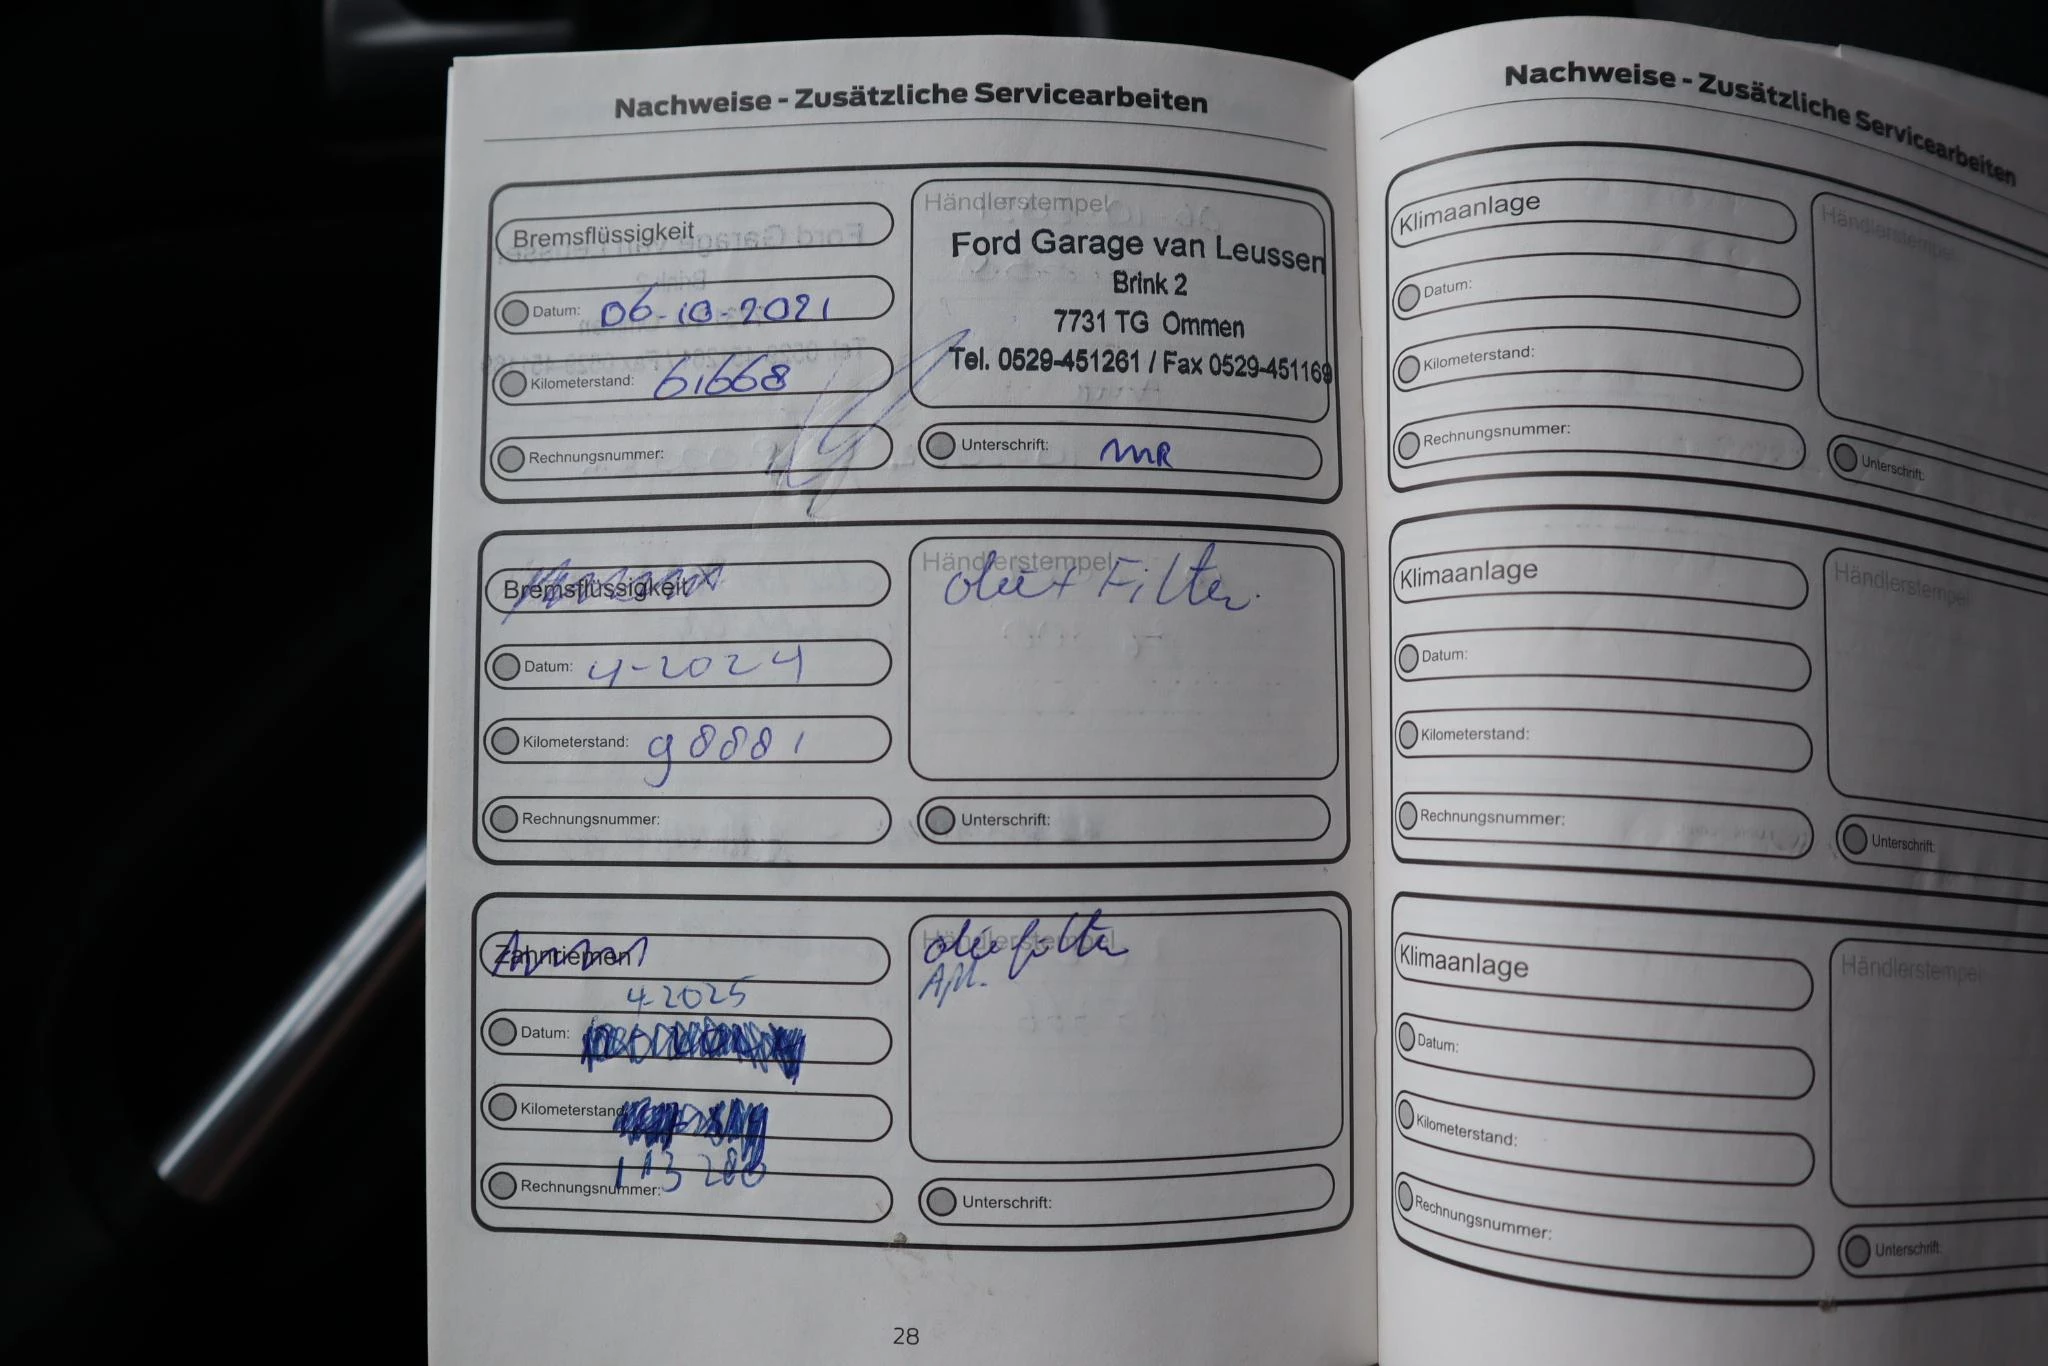 Nachweise - Zusätzliche Servicearbeiten
Bremsflüssigkeit
Datum: 06-10-2021
Kilometerstand: 61668
Rechnungsnummer:
Händlerstempel
Ford Garage van Leussen
Brink 2
7731 TG Ommen
Tel. 0529-451261 / Fax 0529-451169
Unterschrift: MR
Bremsflüssigkeit
Datum: 4-2024
Kilometerstand: 98881
Rechnungsnummer:
Händlerstempel
olie + Filter.
Unterschrift:
Zahnriemen
4-2025
Datum:
Kilometerstand:
113 200
Rechnungsnummer:
Händlerstempel
olie filter
Unterschrift:
28
Nachweise - Zusätzliche Servicearbeiten
Klimaanlage
Datum:
Kilometerstand:
Rechnungsnummer:
Händlerstempel
Unterschrift:
Klimaanlage
Datum:
Kilometerstand:
Rechnungsnummer:
Händlerstempel
Unterschrift:
Klimaanlage
Datum:
Kilometerstand:
Rechnungsnummer:
Händlerstempel
Unterschrift: